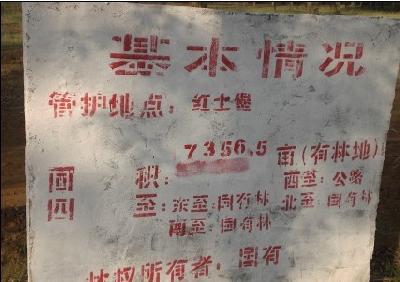 基本情况
管护地点：红土堡
面积：7356.5亩(有林地)
四至：东至：国有林 西至：公路
南至：国有林 北至：国有林
林权所有者：国有